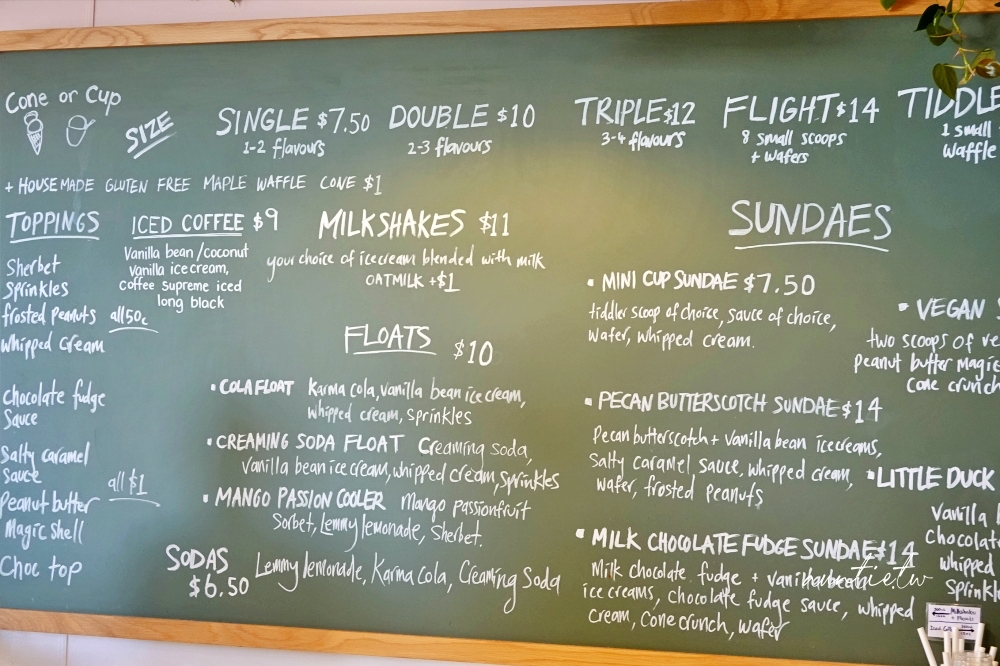 Cone or Cup
SIZE
SINGLE $7.50
1-2 flavours
DOUBLE $10
2-3 flavours
TRIPLE $12
3-4 flavours
FLIGHT $14
8 small scoops
+ wafers
TIDDLE
1 small
waffle
+ HOUSEMADE GLUTEN FREE MAPLE WAFFLE CONE $1
TOPPINGS
Sherbet
Sprinkles
frosted Peanuts all 50c
whipped cream
chocolate fudge
Sauce
Salty caramel
Sauce
Peanut butter
Magic shell
all $1
Choc top
ICED COFFEE $9
Vanilla bean/coconut
vanilla ice cream,
coffee supreme iced
long black
MILKSHAKES $11
your choice of icecream blended with milk
OATMILK +$1
FLOATS $10
• COLA FLOAT Karma cola, vanilla bean ice cream,
whipped cream, sprinkles
• CREAMING SODA FLOAT Creaming soda,
Vanilla bean ice cream, whipped cream, sprinkles
• MANGO PASSION COOLER Mango passionfruit
Sorbet, Lemmy lemonade, Sherbet.
SODAS
$6.50
Lemmy lemonade, Karma Cola, Creaming Soda
SUNDAES
• MINI CUP SUNDAE $7.50
tiddler scoop of choice, sauce of choice,
wafer, whipped cream.
• PECAN BUTTERSCOTCH SUNDAE $14
Pecan butterscotch + vanilla bean icecreams,
Salty caramel sauce, whipped cream,
wafer, frosted Peanuts
• MILK CHOCOLATE FUDGE SUNDAE $14
Milk chocolate fudge + vanilla bean
ice creams, chocolate fudge sauce, whipped
cream, cone crunch, wafer
• VEGAN
two scoops of ve
Peanut butter magic
cone crunch
• LITTLE DUCK
Vanilla
Chocolat
whipped
Sprinkl